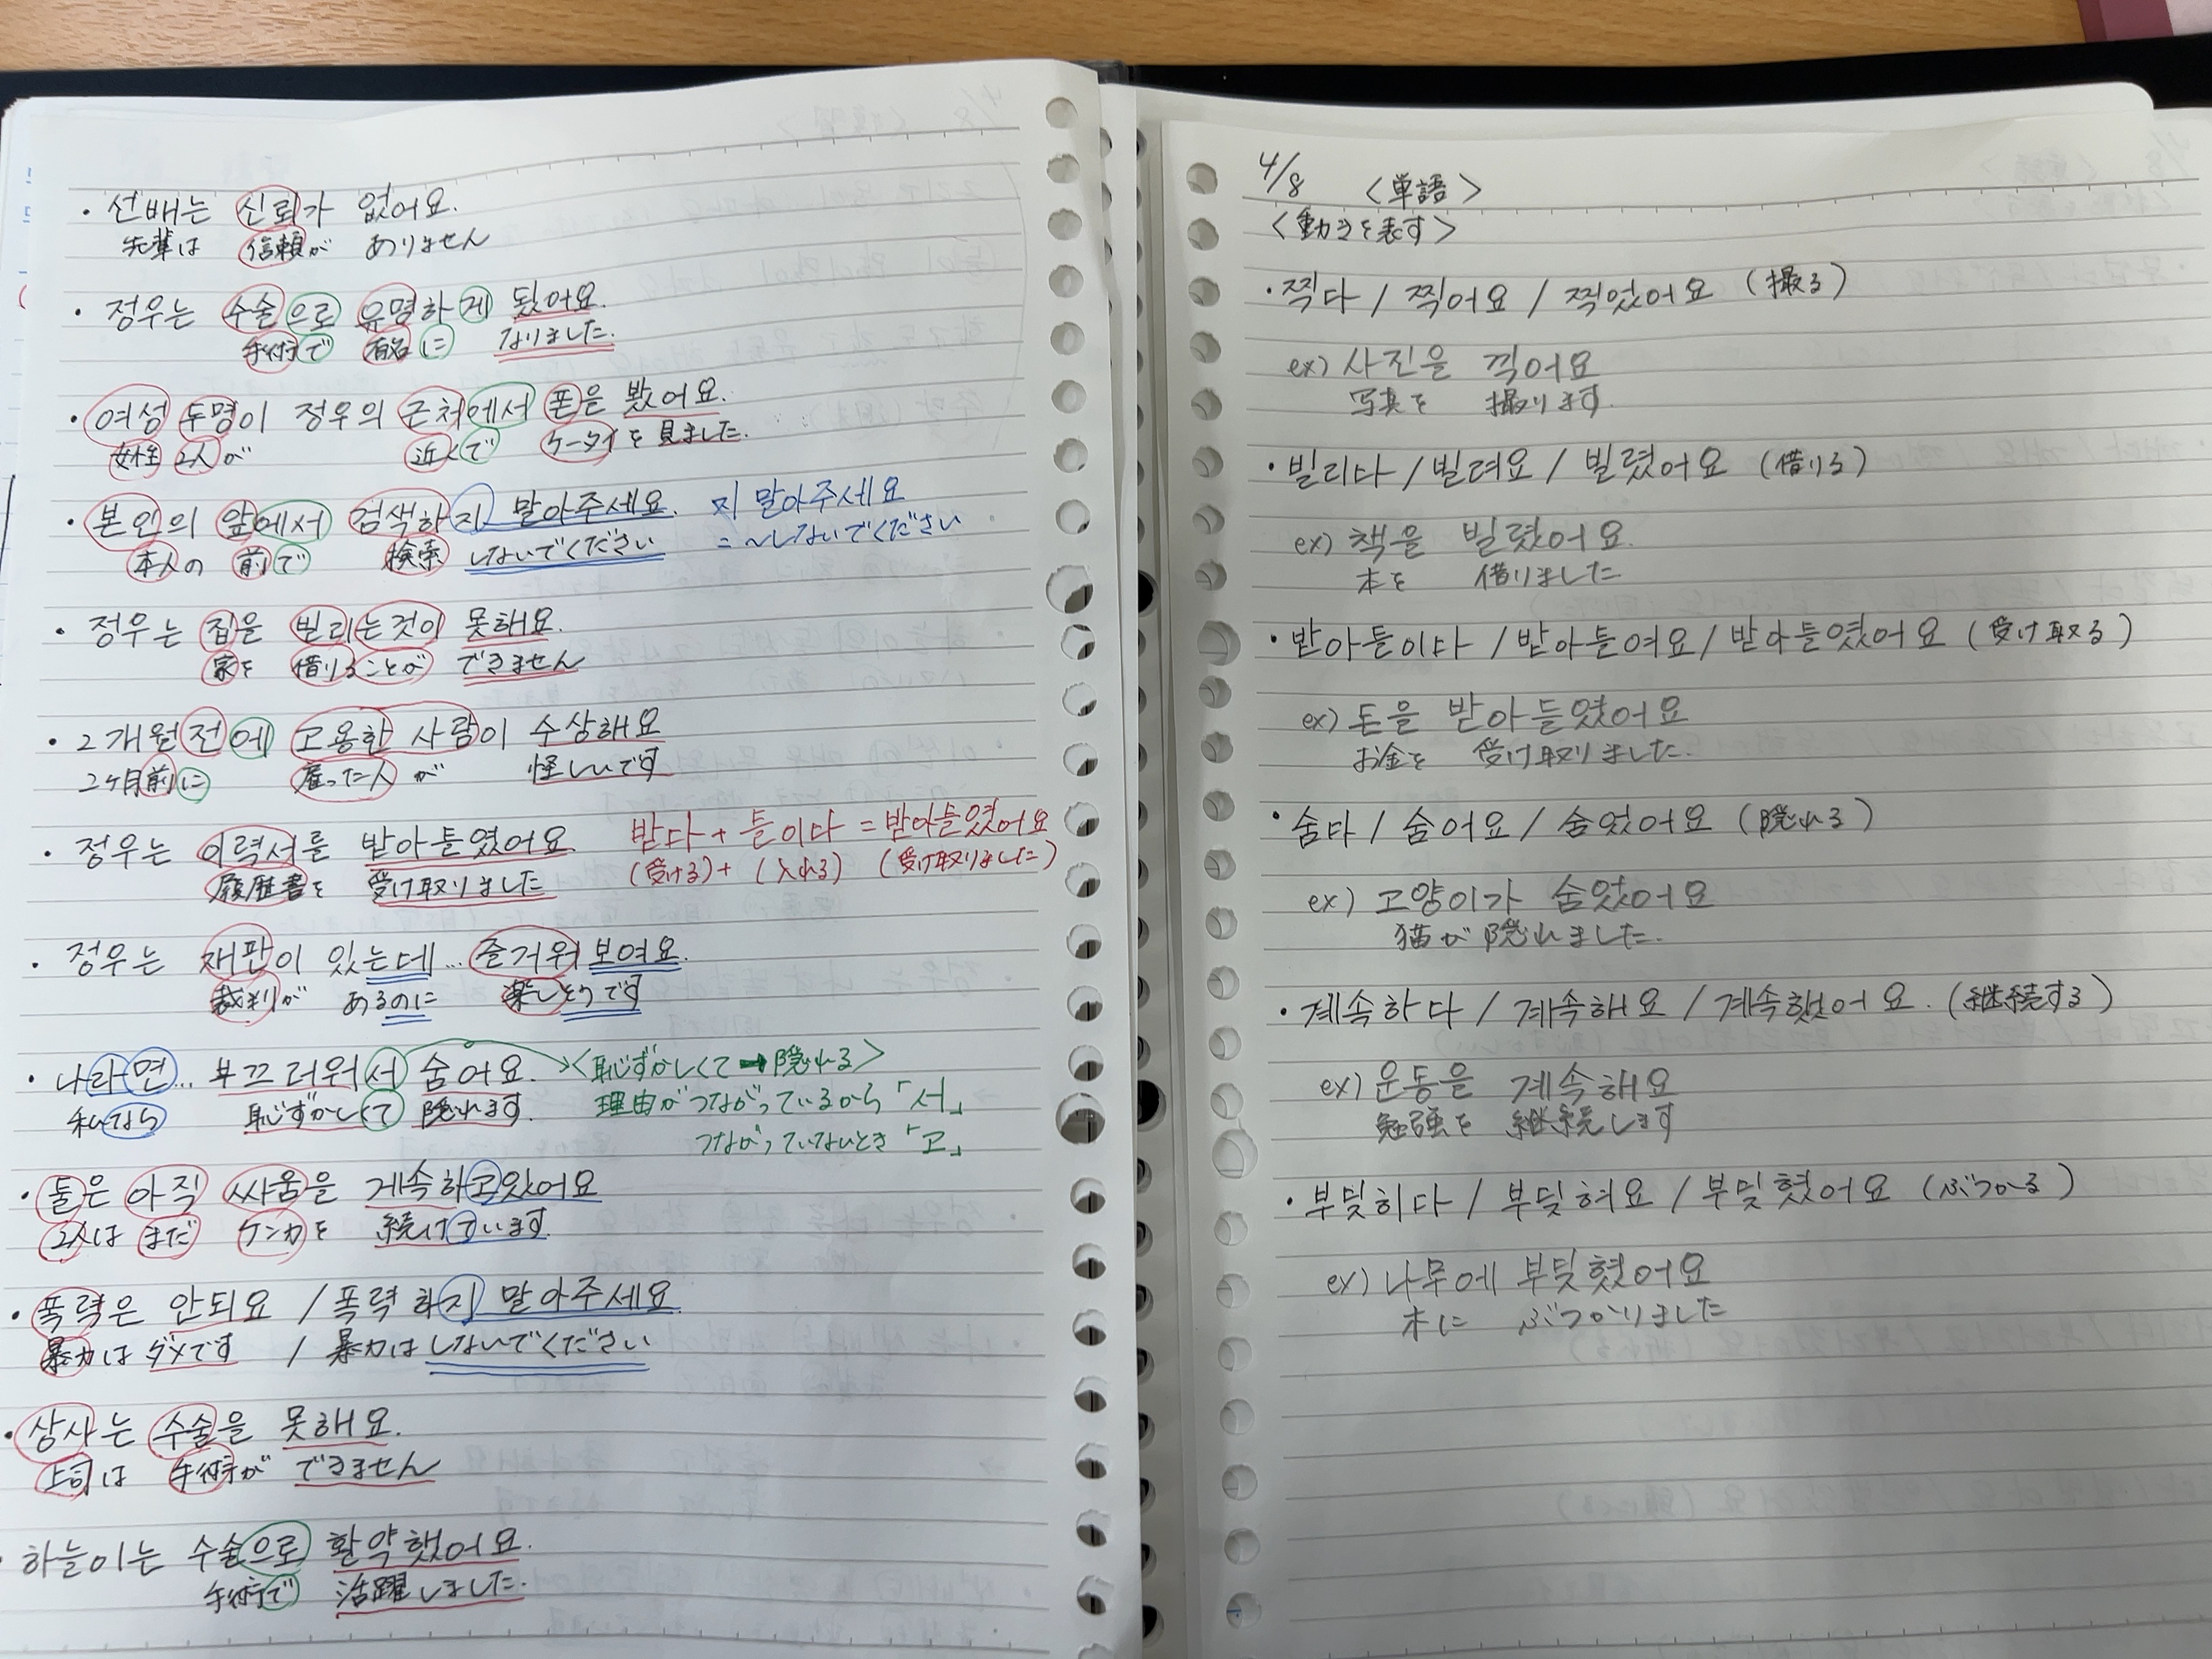 ・선배는 신뢰가 없어요.
先輩は 信頼が ありません
・정우는 수술으로 유명하게 됬어요.
手術で 有名に なりました.
・여성 두명이 정우의 근처에서 폰을 봤어요.
女性 2人が 近くで ケータイを見ました.
・본인의 앞에서 검색하지 말아주세요. 지 말아주세요
本人の 前で 検索 しないでください =〜しないでください
・정우는 집을 빌리는것이 못해요.
家を 借りることが できません
・2개월전에 고용한 사람이 수상해요
2ヶ月前に 雇った人が 怪しいです
・정우는 이력서를 받아들였어요. 받다+들이다=받아들였어요
履歴書を 受け取りました (受ける)+(入れる) (受け取りました)
・정우는 재판이 있는데… 즐거워 보여요.
裁判が あるのに 楽しそうです
・나라면… 부끄러워서 숨어요. <恥ずかしくて→隠れる>
私なら 恥ずかしくて 隠れます. 理由がつながっているから「서」
つながっていないとき「고」
・둘은 아직 싸움을 게속하고있어요
2人は まだ ケンカを 続けています.
・폭력은 안되요 / 폭력하지 말아주세요.
暴力は ダメです / 暴力は しないでください
・상사는 수술을 못해요.
上司は 手術が できません
・하늘이는 수술으로 활약했어요.
手術で 活躍しました.
4/8 <単語>
<動きを表す>
・찍다 / 찍어요 / 찍었어요 (撮る)
ex) 사진을 찍어요
写真を 撮ります.
・빌리다 / 빌려요 / 빌렸어요 (借りる)
ex) 책을 빌렸어요.
本を 借りました
・받아들이다 / 받아들여요 / 받아들였어요 (受け取る)
ex) 돈을 받아들였어요
お金を 受け取りました.
・숨다 / 숨어요 / 숨었어요 (隠れる)
ex) 고양이가 숨었어요
猫が 隠れました.
・계속하다 / 계속해요 / 계속했어요. (継続する)
ex) 운동을 계속해요
勉強を 継続します
・부딪히다 / 부딪혀요 / 부딪혔어요 (ぶつかる)
ex) 나무에 부딪혔어요
木に ぶつかりました